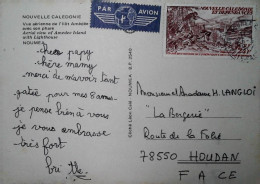 NOUVELLE CALEDONIE
Vue aérienne de l'îlot Amédée
avec son phare
Aerial view of Amedee Island
with Lighthouse
NOUMEA
PAR AVION
NOUVELLE CALEDONIE
ET DEPENDANCES
chers papy
chère mamy
merci de m'avoir tant
gatée pour mes 8 ans
je pense bien à vous
je vous embrasse
très fort
Monsieur et Madame H. LANGLOI
"La Bergerie"
Route de la Folie
78550 HOUDAN
F A C E